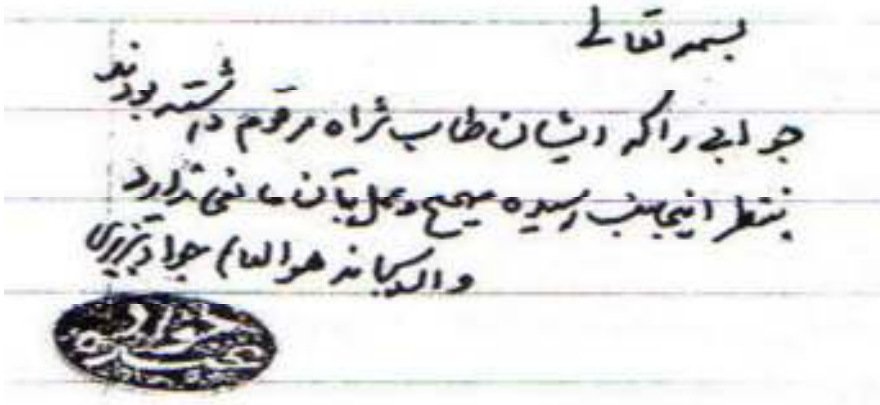 بسمه تعالی
جوابی را که ایشان طاب ثراه مرقوم داشته بودند
بنظر اینجانب رسیده صحیح و عمل بآن مانعی ندارد
والله سبحانه هو العالم جواد تبریزی
جواد